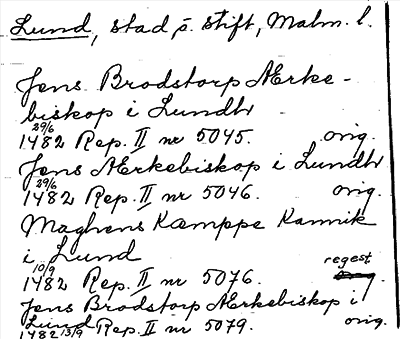 Lund, stad o. stift, Malm. l.
Jens Brodstorp Ærke-
biskop i Lundh
29/6
1482 Rep. II nr 5045. orig.
Jens Ærkebiskop i Lundh
29/6
1482 Rep. II nr 5046. orig.
Maghens Kæmppe Kannik
i Lund
10/9 regest
1482 Rep. II nr 5076.
Jens Brodstorp Ærkebiskop i
Lund
1482 13/9 Rep. II nr 5079. orig.